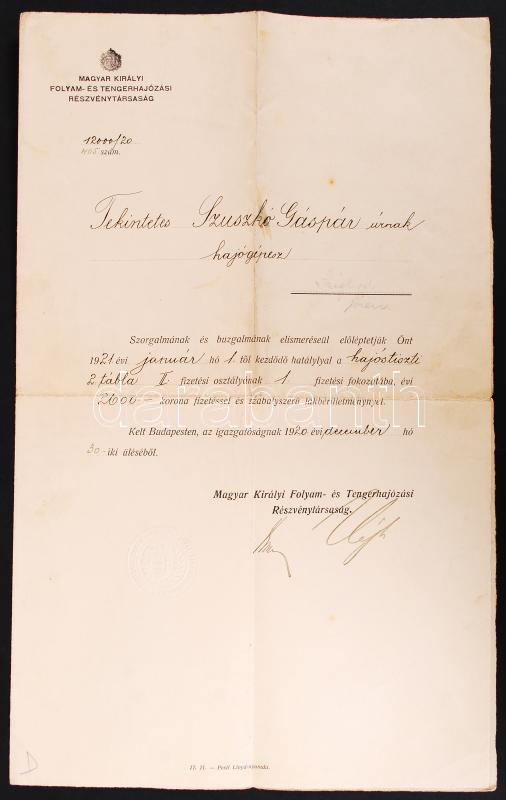 MAGYAR KIRÁLYI
FOLYAM- ÉS TENGERHAJÓZÁSI
RÉSZVÉNYTÁRSASÁG
12000/20
405 szám.
Tekintetes Szuszkó Gáspár úrnak
hajógépész
Szorgalmának és buzgalmának elismeréseül előléptetjük Önt
1921 évi január hó 1 től kezdődő hatálylyal a hajóstiszti
2 tábla II fizetési osztályának 1 fizetési fokozatába, évi
2600 — korona fizetéssel és szabályszerű lakbérilletménynyel.
darabanth
Kelt Budapesten, az igazgatóságnak 1920 évi december hó
30-iki üléséből.
Magyar Királyi Folyam- és Tengerhajózási
Részvénytársaság.
D
17. 71. — Pesti Lloyd-nyomda.